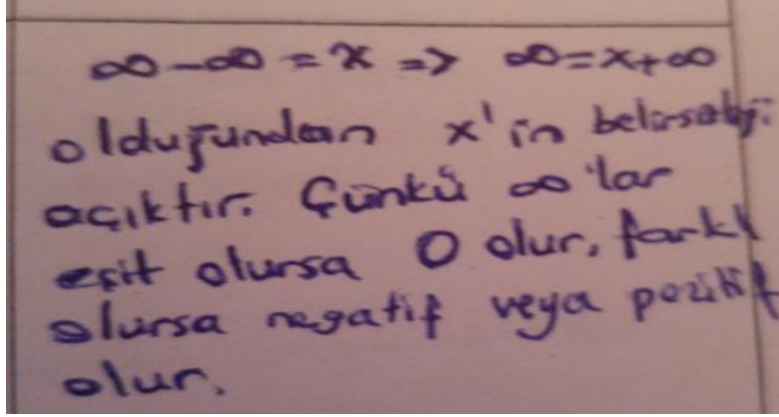 ∞-∞ = x => ∞=x+∞
olduğundan x'in belirsizliği
açıktır. Çünkü ∞'lar
eşit olursa 0 olur, farklı
olursa negatif veya pozitif
olur.